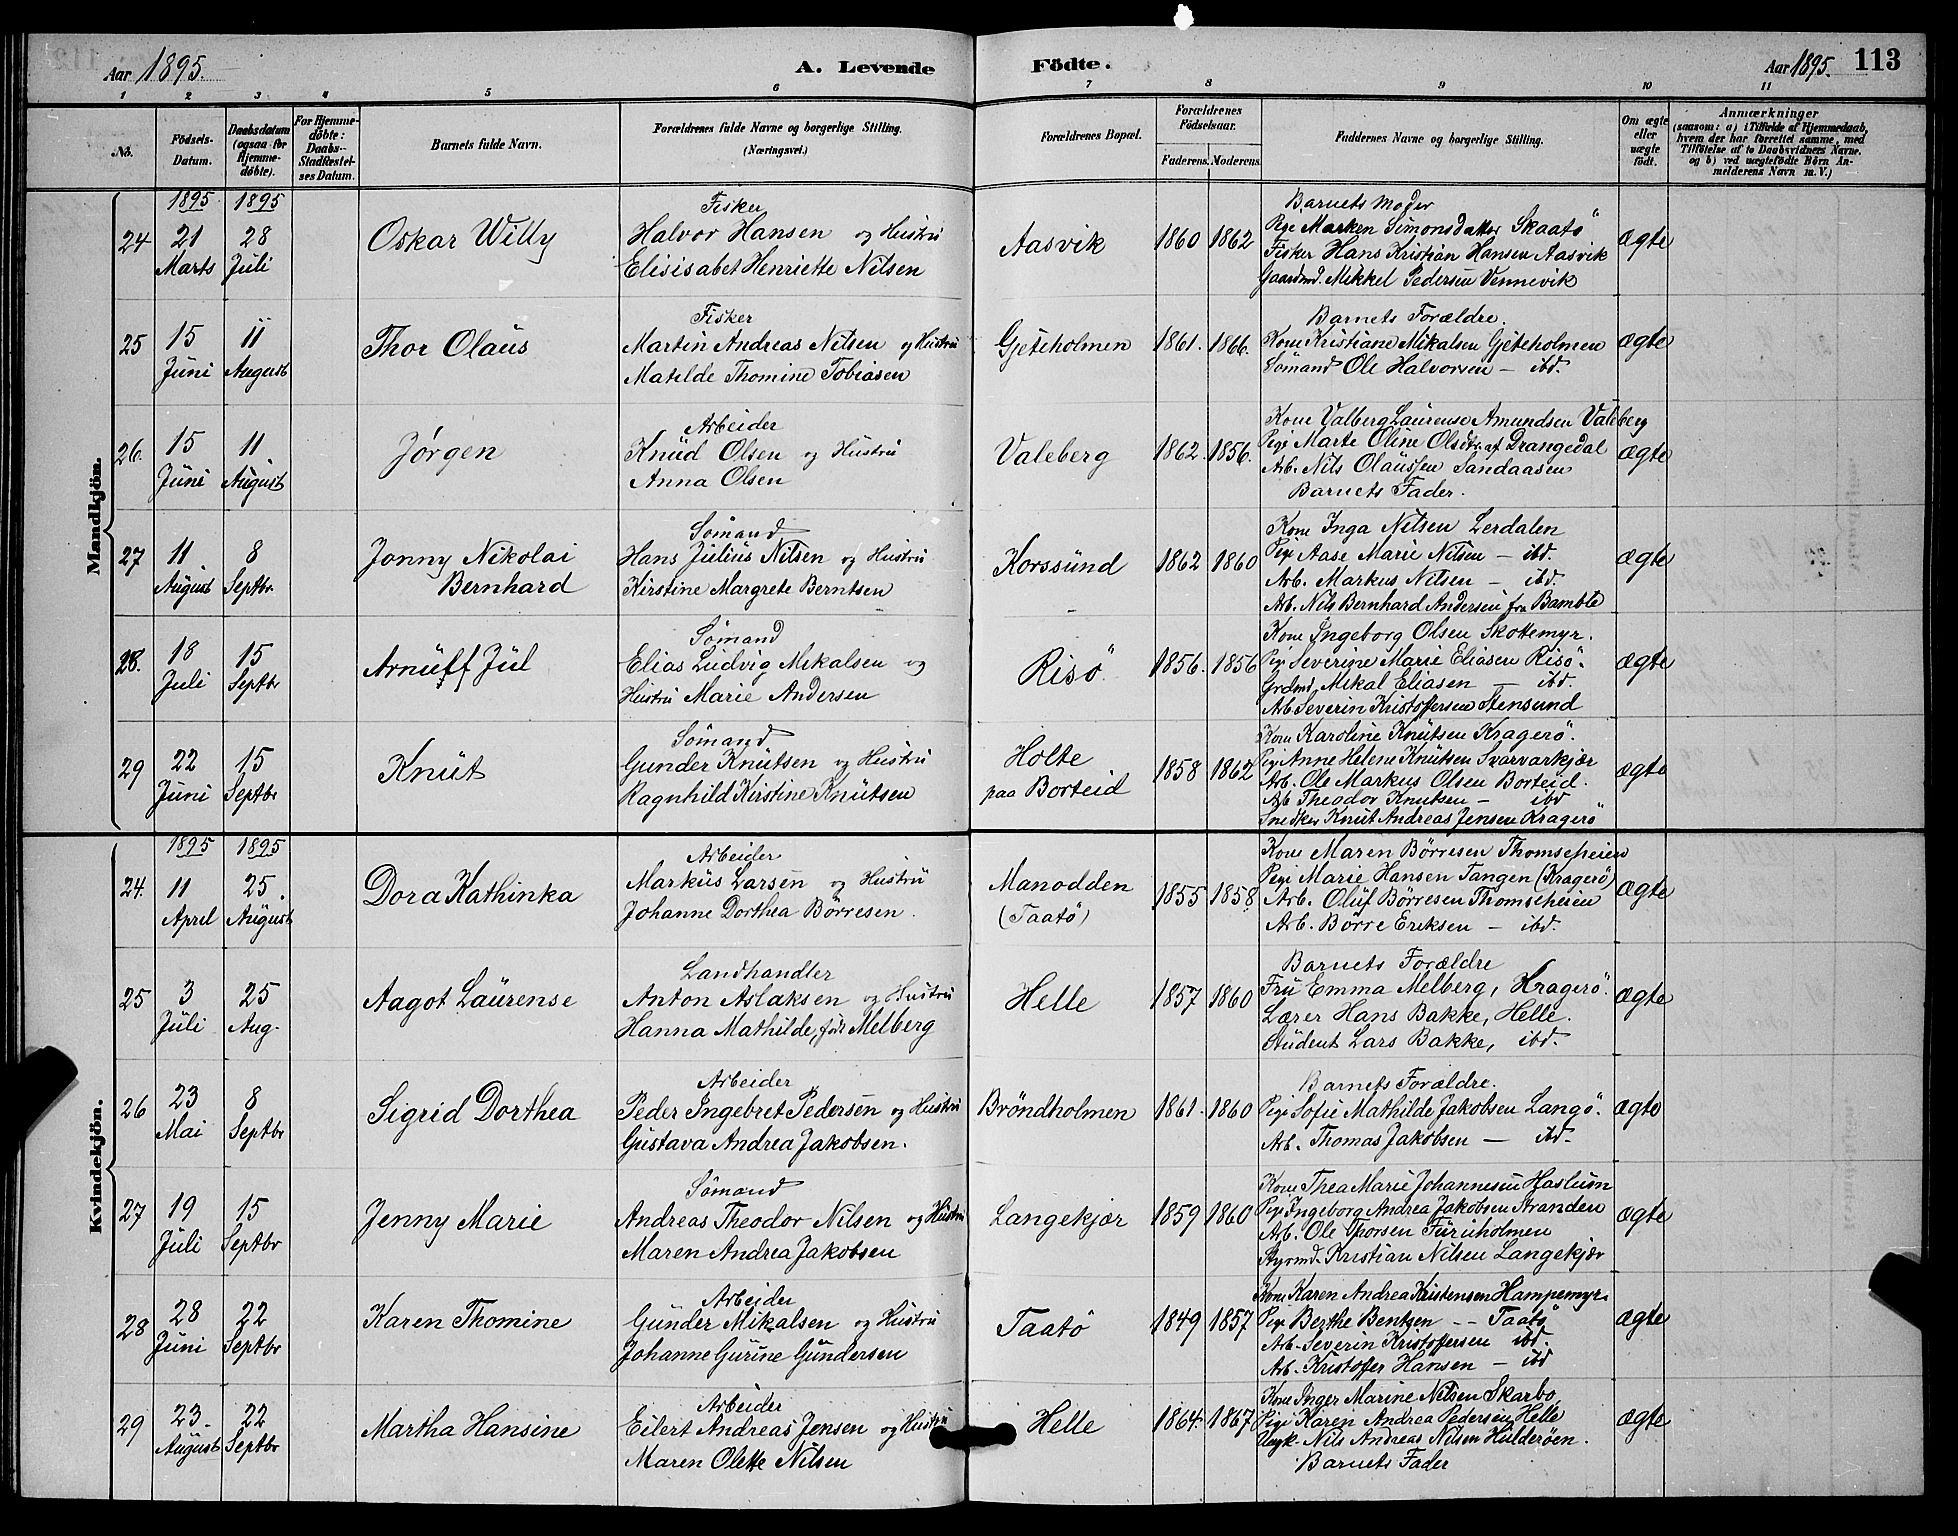 Aar 1895.
A. Levende Födte.
Aar 1895. 113
1 2 3 4 5 6 7 8 9 10 11
No.
Födsels-Datum.
Daabsdatum (ogsaa for Hjemme-döbte).
For Hjemme-döbte: Daabs-Stadfæstel-ses Datum.
Barnets fulde Navn.
Forældrenes fulde Navne og borgerlige Stilling. (Næringsvei.)
Forældrenes Bopæl.
Forældrenes Födselsaar.
Faderens. Moderens.
Faddernes Navne og borgerlige Stilling.
Om ægte eller uægte födt.
Anmærkninger
(saasom: a) i Tilfælde af Hjemmedaab, hvem der har forrettet samme, med Tilföielse af to Daabsvidners Navne. og b) ved uægtefödte Börn An-melderens Navn m. V.)
Mandkjön.
1895 1895
24 21 Marts 28 Juli
Oskar Willy
Fisker
Halvor Hansen og Hustru
Elisisabet Henriette Nilsen
Aasvik 1860 1862
Barnets Moder
Pige Marken Simonsdatter Skaatö
Fisker Hans Kristian Hansen Aasvik
Gaardmd. Mekkel Pedersen Vennevik
ægte
25 15 Juni 11 August
Thor Olaus
Fisker
Martin Andreas Nilsen og Hustru
Matilde Thomine Tobiasen
Gjeteholmen 1861. 1866.
Barnets Forældre.
Kone Kristiane Mikalsen Gjeteholmen
Sömand Ole Halvorsen — ibd.
ægte
26. 15 Juni 11 August
Jørgen
Arbeider
Knud Olsen og Hustru
Anna Olsen
Valeberg 1862. 1856.
Kone Valberg Laurense Amundsen Valeberg
Pige Marte Oline Olsdtr. af Drangedal
Arb. Nils Olaussen Sandaasen
Barnets Fader.
ægte
27 11 August 8 Septbr
Jonny Nikolai
Bernhard
Sömand
Hans Julius Nilsen og Hustru
Kirstine Margrete Berntsen
Korssund 1862 1860
Kone Inga Nilsen Lerdalen
Pige Aase Marie Nilsen — ibd.
Arb. Markus Nilsen — ibd.
Arb. Nils Bernhard Andersen fra Bamble
ægte
28. 18 Juli 15 Septbr
Arnuff Jul
Sömand
Elias Ludvig Mikalsen og
Hustru Marie Andersen
Risö 1856. 1856
Kone Ingeborg Olsen Skottemyr.
Pige Severine Marie Eliasen Risö.
Grdmd. Mikal Eliasen — ibd.
Arb Severin Kristoffersen Stensund
ægte
29 22 Juni 15 Septbr
Knut
Sömand
Gunder Knutsen og Hustru
Ragnhild Kirstine Knutsen
Holte
paa Borteid 1858 1862
Kone Karoline Knutsen Kragerö.
Pige Anne Helene Knutsen Svarvarkjær
Arb. Ole Markus Olsen Borteid.
Arb Theodor Knutsen — ibd
Snedker Knut Andreas Jensen Kragerö
ægte
Kvindekjön.
1895 1895
24. 11 April 25. August
Dora Kathinka
Arbeider
Markus Larsen og Hustru
Johanne Dorthea Börresen.
Manodden
(Taatö) 1855 1858
Kone Maren Börresen Thomseheien
Pige Marie Hansen Tangen (Kragerö)
Arb. Oluf Börresen Thomseheien
Arb. Börre Eriksen — ibd.
ægte
25 3 Juli 25 Aug.
Aagot Laurense
Landhandler
Anton Aslaksen og Hustru
Hanna Mathilde, föd Melberg
Helle 1857 1860
Barnets Forældre
Fru Emma Melberg, Kragerö.
Lærer Hans Bakke, Helle.
Student Lars Bakke, ibd.
ægte
26 23 Mai 8 Septbr
Sigrid Dorthea
Arbeider
Peder Ingebret Pedersen og Hustru
Gustava Andrea Jakobsen.
Bröndholmen 1861. 1860
Barnets Forældre.
Pige Sofie Mathilde Jakobsen Langö.
Arb. Thomas Jakobsen — ibd.
ægte
27 19 Juli 15 Septbr
Jenny Marie
Sömand
Andreas Theodor Nilsen og Hustru
Maren Andrea Jakobsen
Langekjær 1859 1860
Kone Thea Marie Johannesen Haslum
Pige Ingeborg Andrea Jakobsen Stranden
Arb. Ole Thorsen Furuholmen
Styrmd. Kristian Nilsen Langekjær
ægte
28 28 Juni 22 Septbr
Karen Thomine
Arbeider
Gunder Mikalsen og Hustru
Johanne Gurine Gundersen
Taatö 1849 1857
Kone Karen Andrea Kristensen Hampemyr.
Pige Berthe Bentsen — Taatö
Arb. Severin Kristoffersen ibd.
Arb. Kristoffer Hansen — ibd
ægte
29 23. August 22 Septbr
Martha Hansine
Arbeider
Eilert Andreas Jensen og Hustru
Maren Olette Nilsen
Helle 1864. 1867
Kone Inger Marine Nilsen Skarbo
Pige Karen Andrea Pedersen Helle
Ungk. Nils Andreas Nilsen Hulderöen.
Barnets Fader
ægte